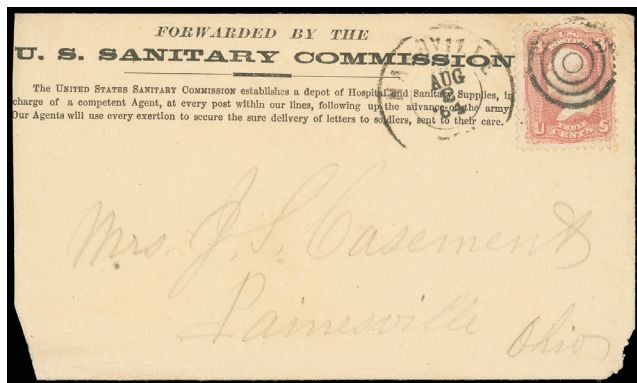 FORWARDED BY THE
U. S. SANITARY COMMISSION
The UNITED STATES SANITARY COMMISSION establishes a depot of Hospital and Sanitary Supplies, in
charge of a competent Agent, at every post within our lines, following up the advance of the army.
Our Agents will use every exertion to secure the sure delivery of letters to soldiers, sent to their care.
AUG
2
64
U THREE S
CENTS
Mrs. J. S. Casement
Painesville
Ohio